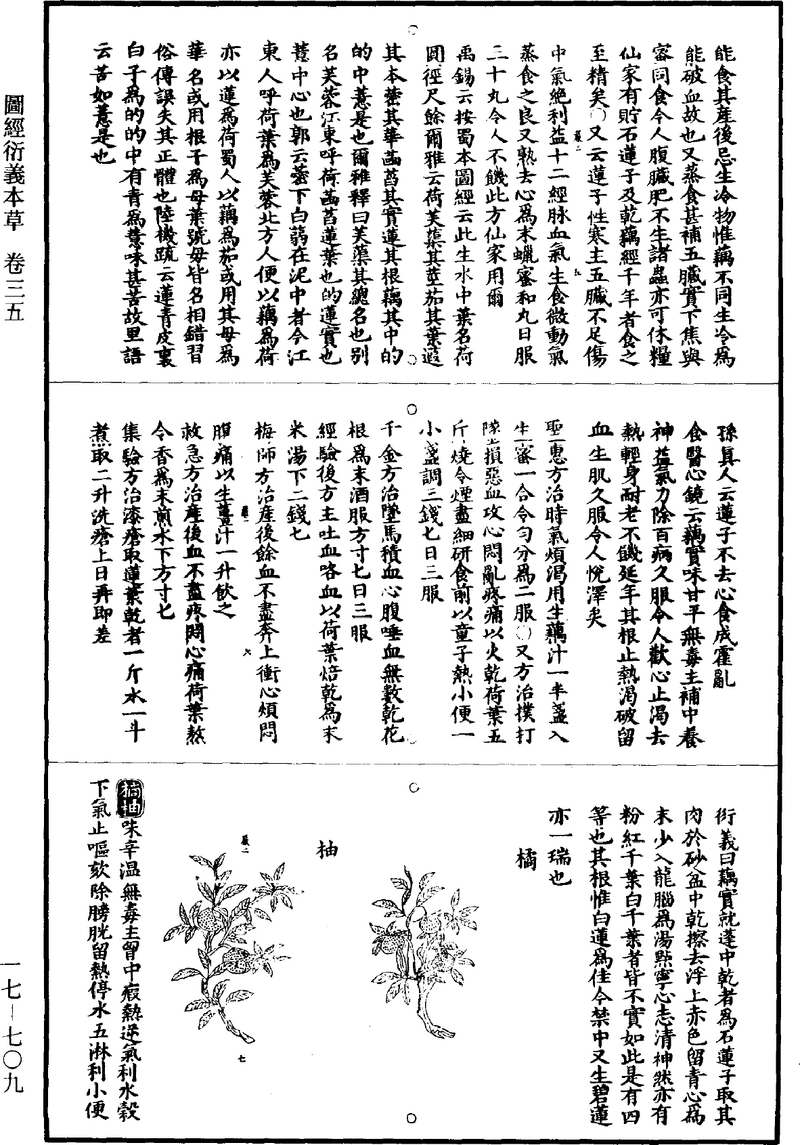 圖經衍義本草 卷三五
一七—七〇九
能食其産後忌生冷物惟藕不同生冷爲
能破血故也又蒸食甚補五臟實下焦與
蜜同食令人腹臟肥不生諸蟲亦可休糧
仙家有貯石蓮子及乾藕經千年者食之
至精矣〇又云蓮子性寒主五臟不足傷
中氣絶利益十二經脉血氣生食微動氣
蒸食之良又熟去心爲末蠟蜜和丸日服
三十丸令人不饑此方仙家用爾
禹錫云按蜀本圖經云此生水中葉名荷
圓徑尺餘爾雅云荷芙蕖其莖茄其葉蕸
其本蔤其華菡萏其實蓮其根藕其中的
的中薏是也爾雅釋曰芙蕖其總名也别
名芙蓉江東呼荷菡萏蓮華也的蓮實也
薏中心也郭云蔤下白蒻在泥中者今江
東人呼荷華爲芙蓉北方人便以藕爲荷
亦以蓮爲荷蜀人以藕爲茄或用其母爲
華名或用根子爲母葉號毋皆名相錯習
俗傳誤失其正體也陸機疏云蓮青皮裏
白子爲的的中有青爲薏味甚苦故里語
云苦如薏是也
孫真人云蓮子不去心食成霍亂
食醫心鏡云藕實味甘平無毒主補中養
神益氣力除百病久服令人歡心止渴去
熱輕身耐老不饑延年其根止熱渴破留
血生肌久服令人悦澤矣
聖惠方治時氣煩渴用生藕汁一半盞入
生蜜一合令勻分爲二服〇又方治撲打
墜損惡血攻心悶亂疼痛以火乾荷葉五
斤燒令煙盡細研食前以童子熱小便一
小盞調三錢匕日三服
千金方治墜馬積血心腹唾血無數乾花
根爲末酒服方寸匕日三服
經驗後方主吐血咯血以荷葉焙乾爲末
米湯下二錢匕
梅師方治産後餘血不盡奔上衝心煩悶
腹痛以生薑汁一升飲之
救急方治産後血不盡疼悶心痛荷葉熬
令香爲末煎水下方寸匕
集驗方治漆瘡取蓮葉乾者一斤水一斗
煮取二升洗瘡上日再即差
衍義曰藕實就蓬中乾者爲石蓮子取其
肉於砂盆中乾擦去浮上赤色留青心爲
末少入龍腦爲湯點寧心志清神然亦有
粉紅千葉白千葉者皆不實如此是有四
等也其根惟白蓮爲佳今禁中又生碧蓮
亦一瑞也
橘
柚
橘柚味辛温無毒主胷中瘕熱逆氣利水穀
下氣止嘔欬除膀胱留熱停水五淋利小便